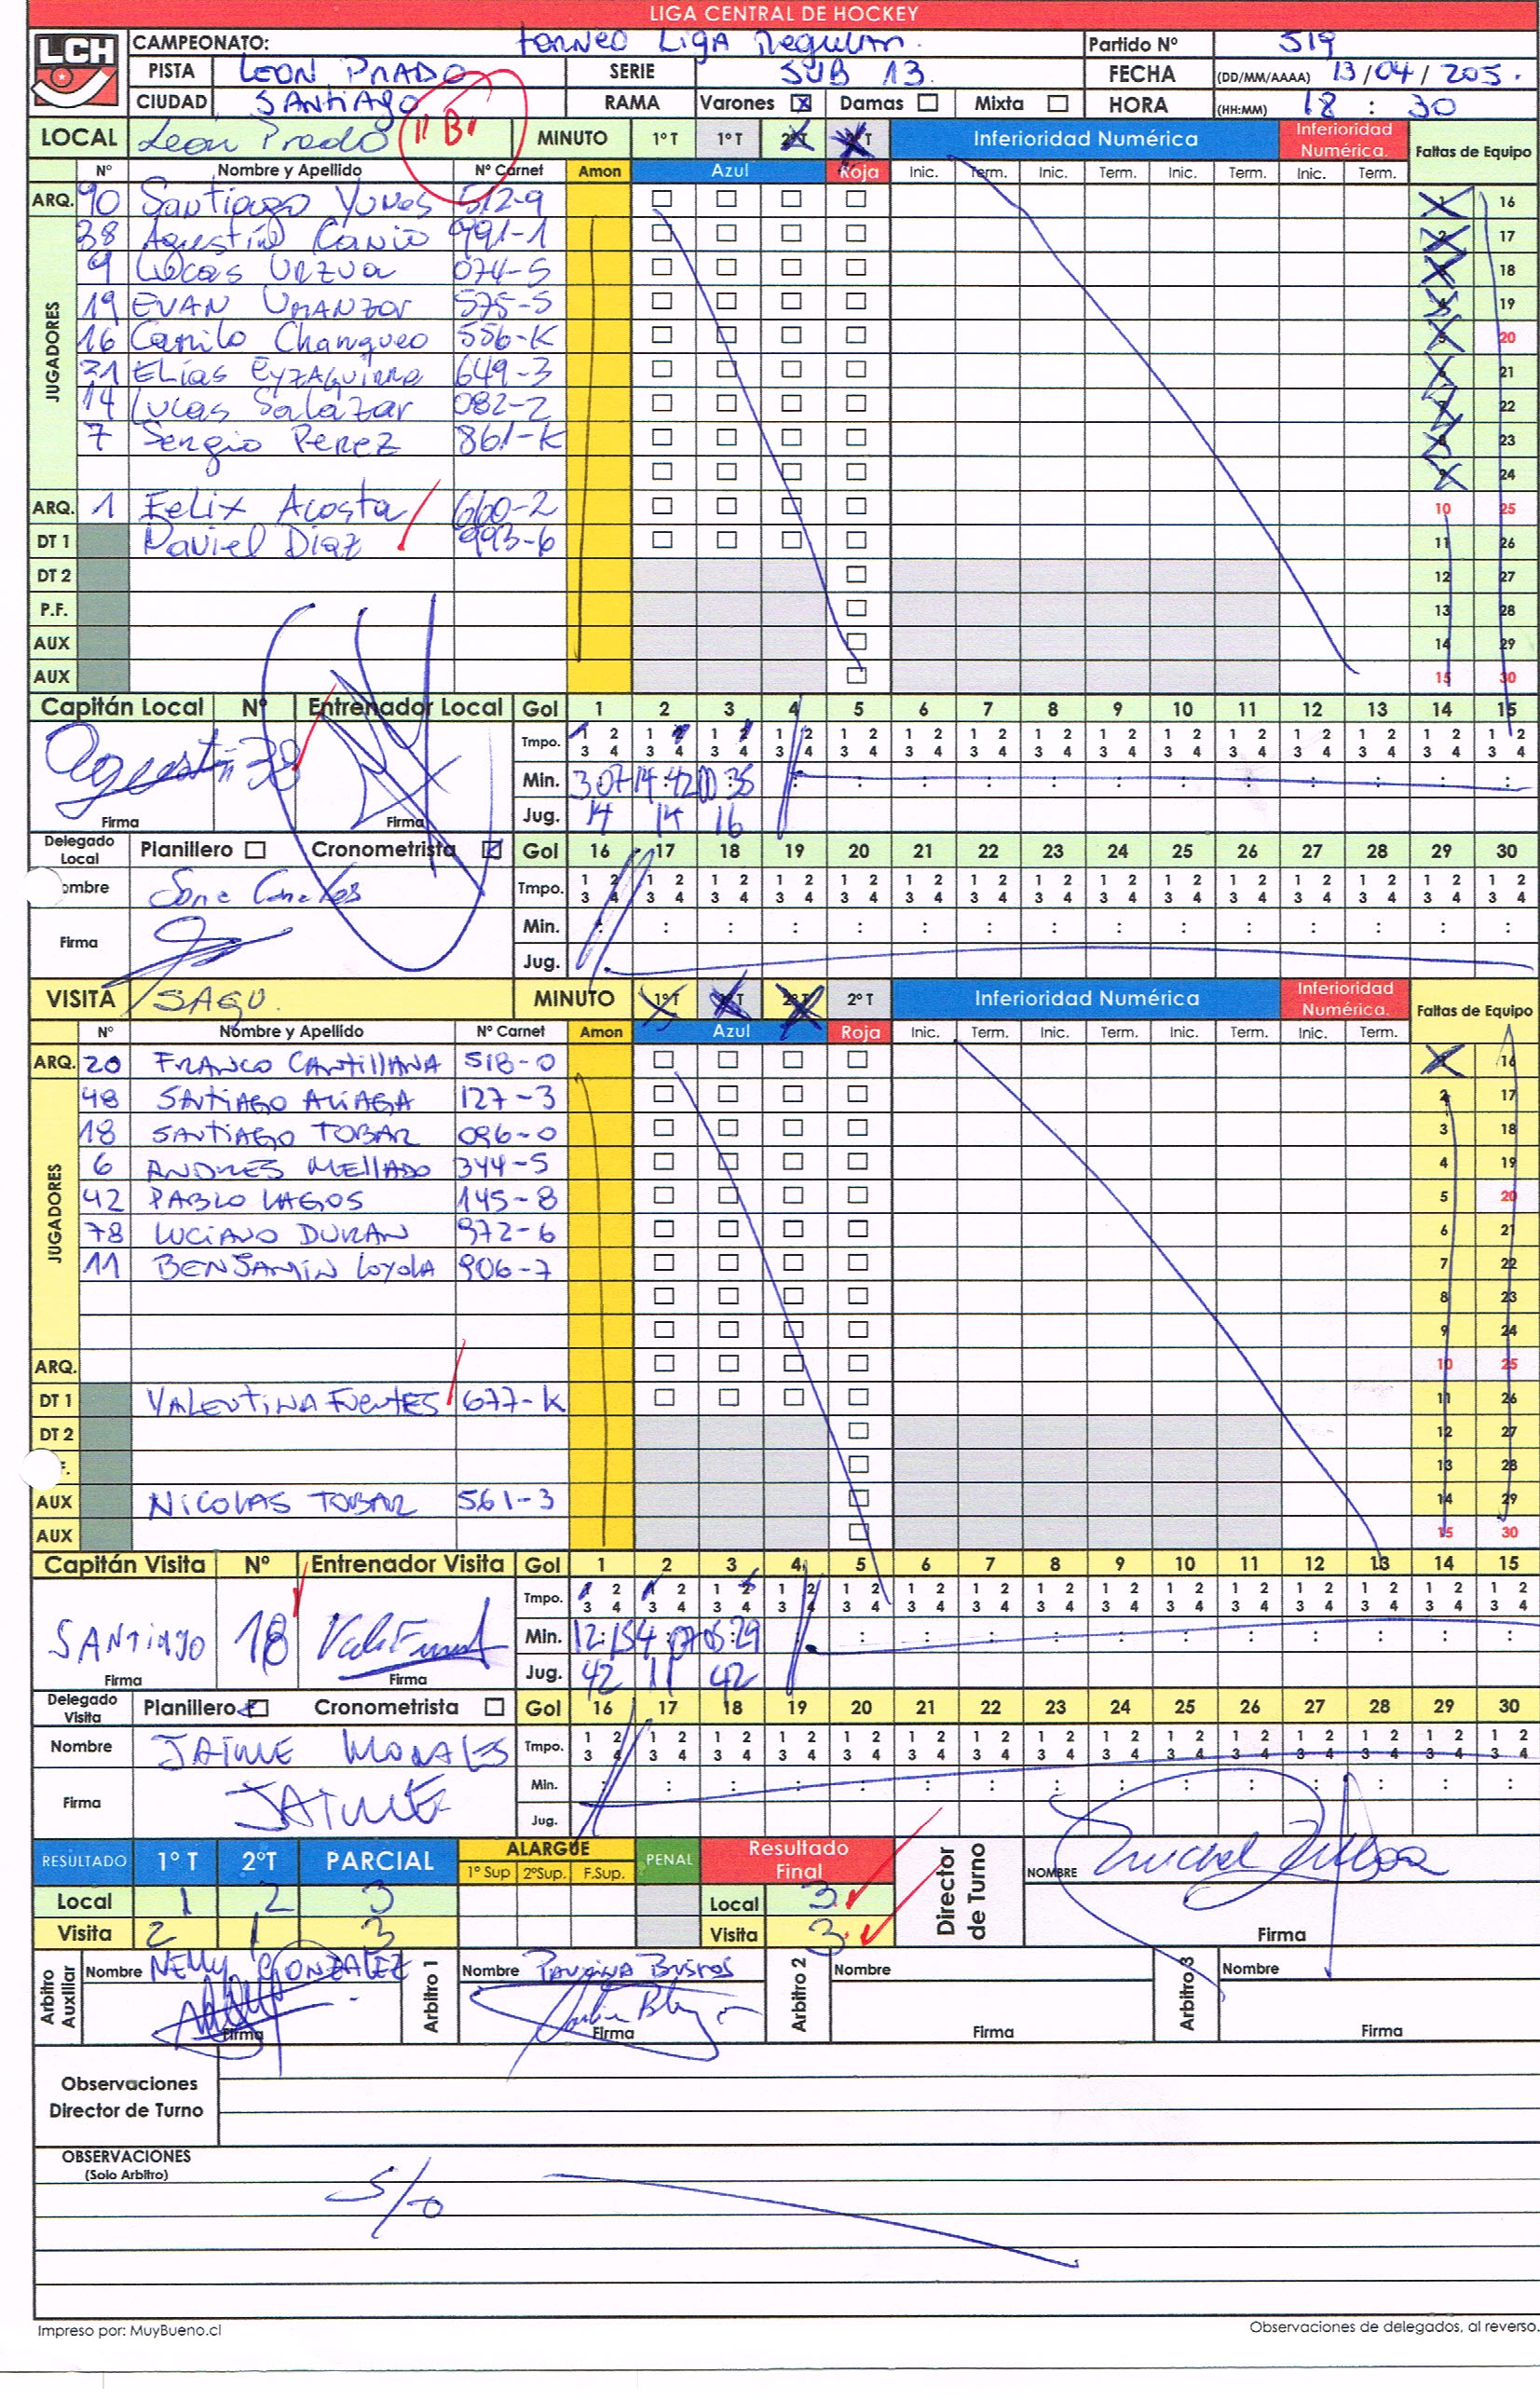 LIGA CENTRAL DE HOCKEY
LCH
CAMPEONATO: torneo Liga Regular. Partido Nº 519
PISTA LEON PRADO SERIE SUB 13. FECHA (DD/MM/AAAA) 13/04/205.
CIUDAD SANTIAGO RAMA Varones Damas Mixta HORA (HH:MM) 18 : 30
LOCAL Leon Prado "B" MINUTO 1º T 1º T 2º T 2º T Inferioridad Numérica Inferioridad Numérica. Faltas de Equipo
Nº Nombre y Apellido Nº Carnet Amon Azul Roja Inic. Term. Inic. Term. Inic. Term. Inic. Term.
ARQ. 90 Santiago Yunes 512-9 1 16
JUGADORES
38 Agustin Canio 991-1 2 17
9 Lucas Urzua 074-5 3 18
19 EVAN UMANZOR 575-5 4 19
16 Camilo Changueo 556-K 5 20
21 ELías EYZAGUIRRE 649-3 6 21
14 Lucas Salazar 082-2 7 22
7 Sergio Perez 861-K 8 23
9 24
ARQ. 1 Felix Acosta 660-2 10 25
DT 1 Daniel Diaz 993-6 11 26
DT 2 12 27
P.F. 13 28
AUX 14 29
AUX 15 30
Capitán Local Nº Entrenador Local Gol 1 2 3 4 5 6 7 8 9 10 11 12 13 14 15
Tmpo. 1 2 3 4 1 2 3 4 1 2 3 4 1 2 3 4 1 2 3 4 1 2 3 4 1 2 3 4 1 2 3 4 1 2 3 4 1 2 3 4 1 2 3 4 1 2 3 4 1 2 3 4 1 2 3 4 1 2 3 4
Agustin 38 Min. 3:07 14:42 00:35
Firma Firma Jug. 14 14 16
Delegado Local Planillero Cronometrista Gol 16 17 18 19 20 21 22 23 24 25 26 27 28 29 30
ombre Tmpo. 1 2 3 4 1 2 3 4 1 2 3 4 1 2 3 4 1 2 3 4 1 2 3 4 1 2 3 4 1 2 3 4 1 2 3 4 1 2 3 4 1 2 3 4 1 2 3 4 1 2 3 4 1 2 3 4 1 2 3 4
Firma Min.
Jug.
VISITA SAGU. MINUTO 1º T 1º T 2º T 2º T Inferioridad Numérica Inferioridad Numérica. Faltas de Equipo
Nº Nombre y Apellido Nº Carnet Amon Azul Roja Inic. Term. Inic. Term. Inic. Term. Inic. Term.
ARQ. 20 FRANCO CANTILLANA 518-0 1 16
JUGADORES
48 SANTIAGO ALIAGA 127-3 2 17
18 SANTIAGO TOBAR 096-0 3 18
6 ANDRES MELLADO 344-5 4 19
42 PABLO LAGOS 145-8 5 20
78 LUCIANO DURAN 972-6 6 21
11 BENJAMIN Loyola 906-7 7 22
8 23
9 24
ARQ. 10 25
DT 1 VALENTINA FUENTES 677-K 11 26
DT 2 12 27
F. 13 28
AUX NICOLAS TOBAR 561-3 14 29
AUX 15 30
Capitán Visita Nº Entrenador Visita Gol 1 2 3 4 5 6 7 8 9 10 11 12 13 14 15
Tmpo. 1 2 3 4 1 2 3 4 1 2 3 4 1 2 3 4 1 2 3 4 1 2 3 4 1 2 3 4 1 2 3 4 1 2 3 4 1 2 3 4 1 2 3 4 1 2 3 4 1 2 3 4 1 2 3 4 1 2 3 4
SANTIAGO 18 Min. 05:29
Firma Firma Jug. 42 11 42
Delegado Visita Planillero Cronometrista Gol 16 17 18 19 20 21 22 23 24 25 26 27 28 29 30
Nombre JAIME MORALES Tmpo. 1 2 3 4 1 2 3 4 1 2 3 4 1 2 3 4 1 2 3 4 1 2 3 4 1 2 3 4 1 2 3 4 1 2 3 4 1 2 3 4 1 2 3 4 1 2 3 4 1 2 3 4 1 2 3 4 1 2 3 4
Firma JAIME Min.
Jug.
RESULTADO 1º T 2ºT PARCIAL ALARGUE 1º Sup 2ºSup. F.Sup. PENAL Resultado Final Director de Turno NOMBRE
Local 1 2 3 Local 3
Visita 2 1 3 Visita 3 Firma
Arbitro Auxiliar Nombre NELLY GONZALEZ Arbitro 1 Nombre PAULINA BUSTOS Arbitro 2 Nombre Arbitro 3 Nombre
Firma Firma Firma Firma
Observaciones
Director de Turno
OBSERVACIONES
(Solo Arbitro)
S/O
Impreso por: MuyBueno.cl Observaciones de delegados, al reverso.